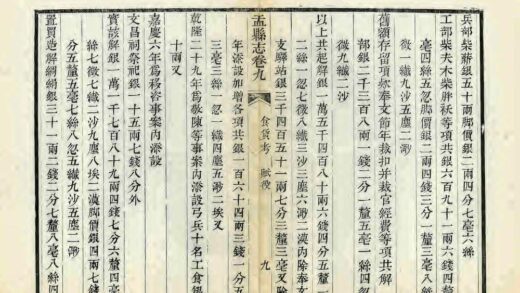 兵部柴薪銀五十兩脚價銀二兩四分七毫六絲
工部柴夫木柴胖袄等項共銀六百九十一兩六錢四
毫四絲五忽脚價銀二兩四錢三分一釐三毫八絲
微一纖九沙五塵二渺
舊額存留項欵奉文節年裁扣并裁官經費等項共解
部銀二千三百八兩一錢二分一釐五毫一絲四忽
微九纖二沙
以上共起解銀一萬五千四百八十兩六錢四分五釐
二絲一忽七微八纖三沙三塵六渺二漠內除奉
支驛站銀三千四百五十一兩七分三釐三毫又除
盂縣志卷九
食貨考
賦役
九
年添設加增各項共銀一百六十四兩三錢一分五
三毫三絲一忽一纖四塵五渺二埃又
乾隆二十九年爲敬陳等事案內添設弓兵十名工食銀
十兩又
嘉慶六年爲移添事案內添設
文昌祠祭祀銀二十五兩七錢八分外
實該解銀一萬一千七百八十九兩四錢七分六釐四毫
絲七微七纖二沙九塵八埃二漠脚價銀四兩七錢
分五釐五毫七絲八忽五纖九沙五塵二渺
置買造解綢絹銀三十一兩二錢二分七釐八毫八絲四